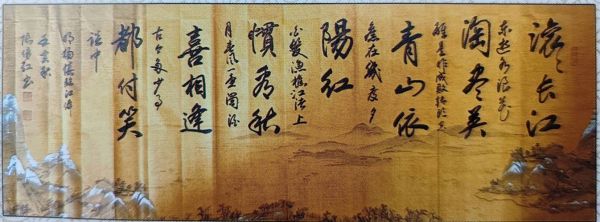 滚〻长江
东逝水浪花
淘尽英
雄是非成败转头空
青山依
旧在幾度夕
陽红
白髮渔樵江渚上
慣看秋
月春风一壶浊酒
喜相逢
古今多少事
都付笑
谈中
明杨慎临江仙
壬寅秋
红书